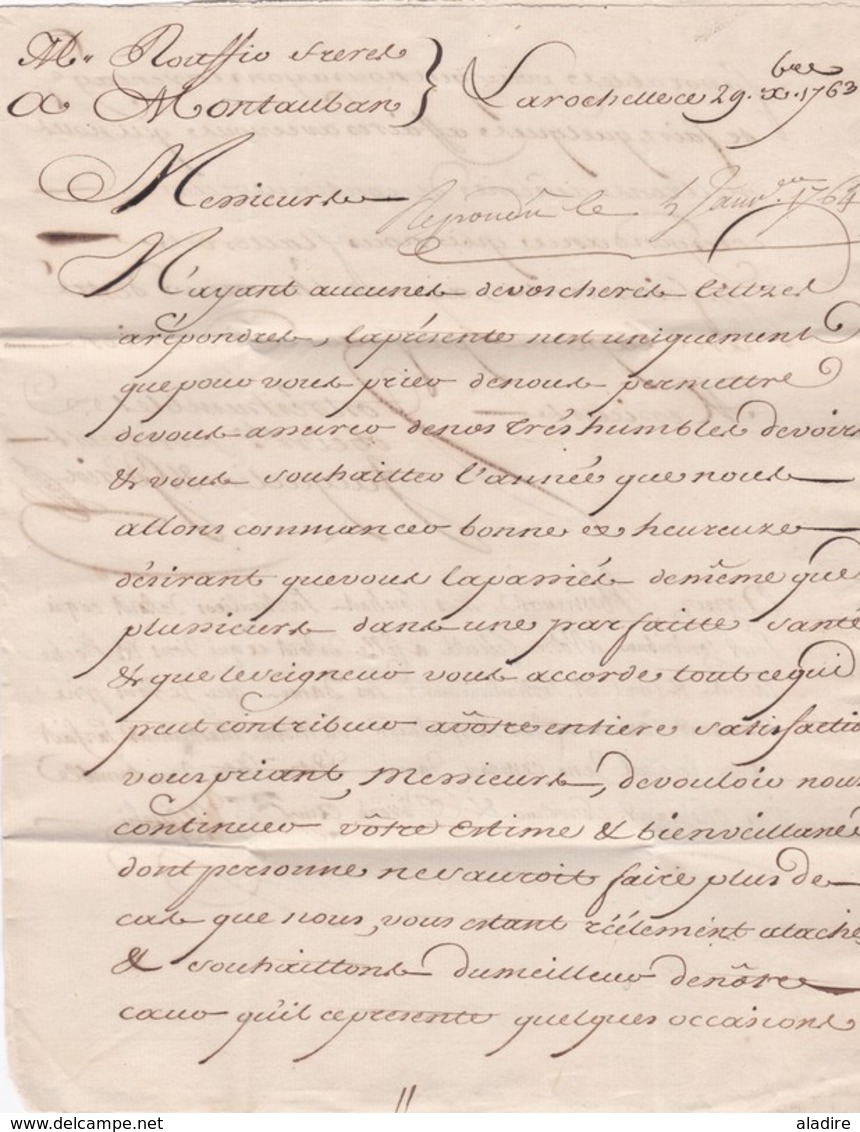 Mrs Rouffio freres
a Montauban } Larochelle ce 29. xbre. 1763
Messieurs
Repondu le 4 Janv.er 1764
N'ayant aucunes de vos cheres lettres
a répondres, la présente nest uniquement
que pour vous prier de nous permettre
de vous assurer de nos trés humbles devoirs
& vous souhaitter l'année que nous
allons commancer bonne & heureuze
désirant que vous la passiés de même que
plusieurs dans une parfaitte santé
& que le seigneur vous accorde tout ce qui
peut contribuer a vôtre entiere satisfactio
vous priant, Messieurs, de vouloir nous
continuer vôtre Estime & bienveillanc
dont personne ne sauroit faire plus de
cas que nous, vous estant réélement ataché
& souhaittons du meilleur de nôtre
cœur qu'il ce presente quelques occasions
aladire